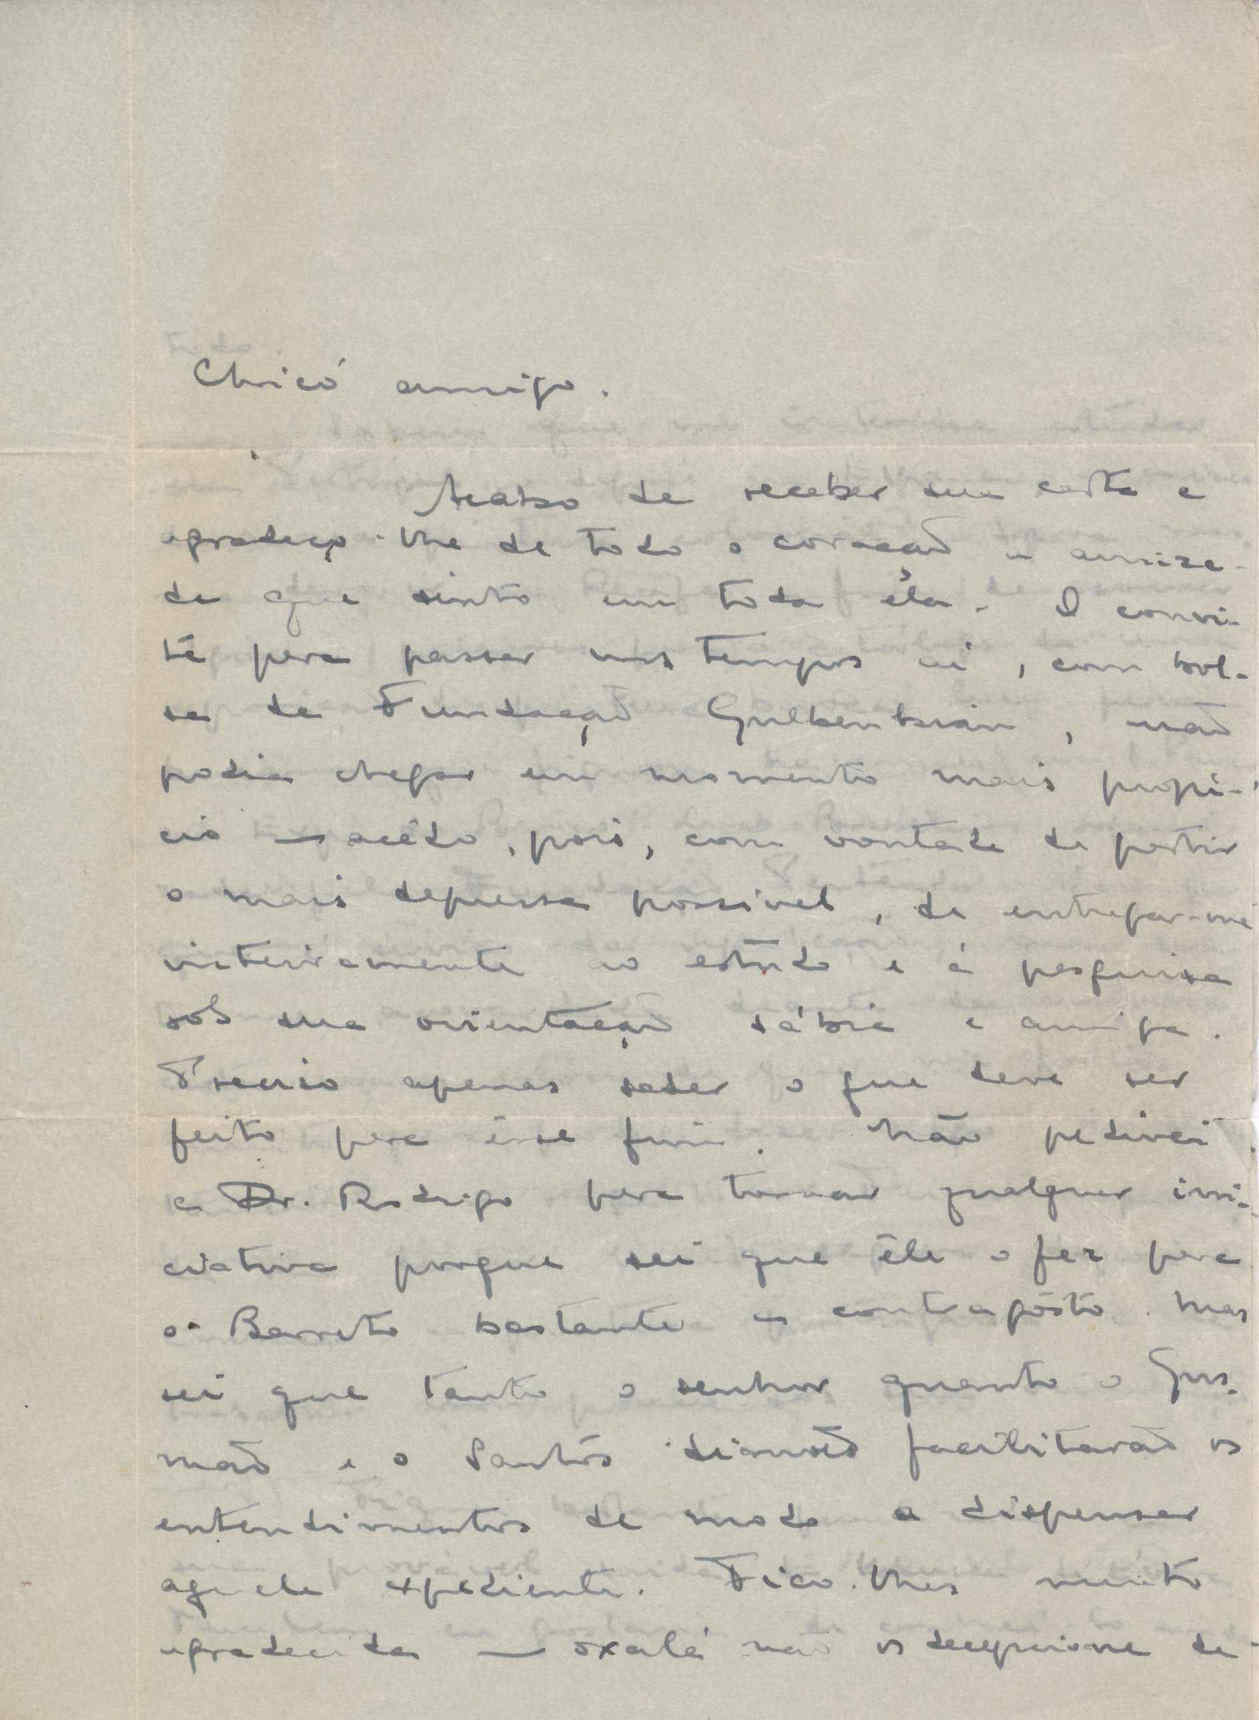 Chicó amigo.
Acabo de receber sua carta e
agradeço-lhe de todo o coração a amiza-
de que sinto em toda éla. O convi-
te para passar uns tempos aí, com bol-
sa da Fundação Gulbenkian, não
podia chegar em momento mais propí-
cio — acédo, pois, com vontade de partir
o mais depressa possivel, de entregar-me
inteiramente ao estudo e à pesquisa
sob sua orientação sábia e amiga.
Preciso apenas saber o que deve ser
feito para êsse fim. Não pedirei
a Dr. Rodrigo para tomar qualquer ini-
ciativa porque sei que êle o fez para
o Barreto bastante a contragôsto. Mas
sei que tanto o senhor quanto o Gus-
mão e o Santos Simões facilitarão os
entendimentos de modo a dispensar
aquele expediente. Fico-lhes muito
agradecida — oxalá não os decepcione de-